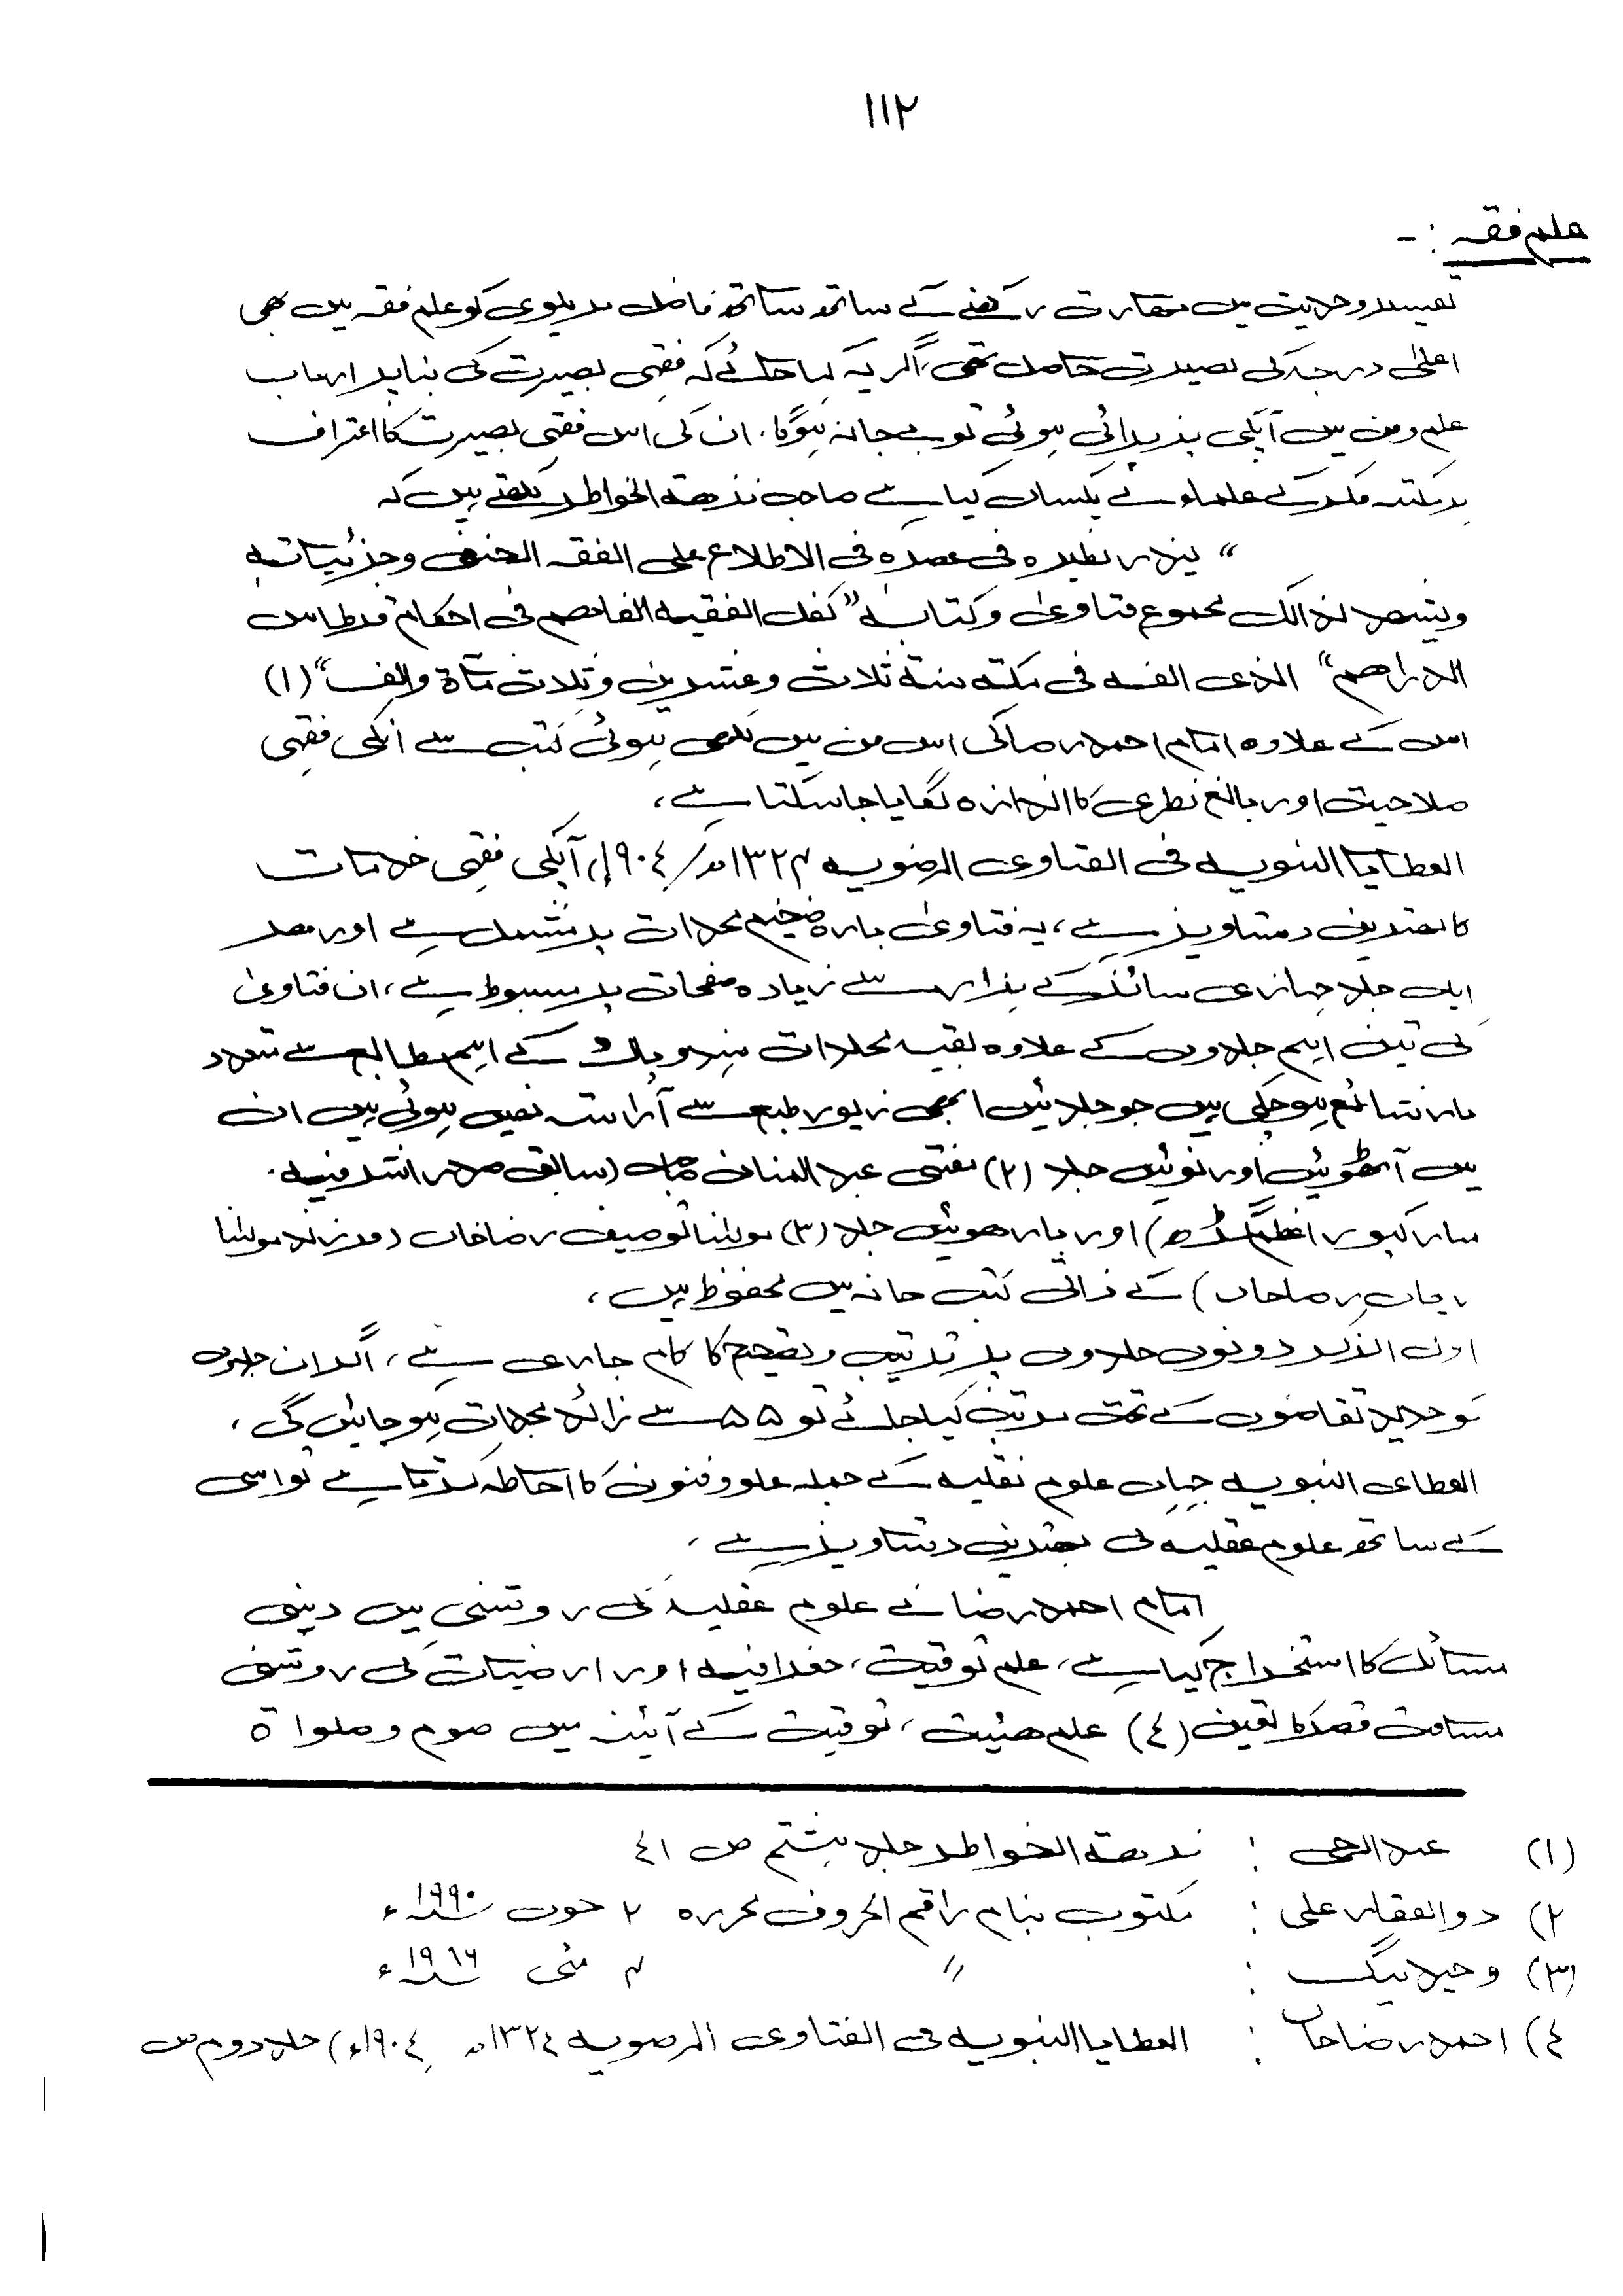 ١١٢
علم فقہ : -
تفسیر و حدیث میں مہارت رکھنے کے ساتھ ساتھ فاضل بریلوی کو علم فقہ میں بھی
اعلیٰ درجہ کی بصیرت حاصل تھی، اگر یہ کہا جائے کہ فقہی بصیرت کی بنا پر ارباب
علم و فن میں آپکی پذیرائی ہوئی تو بے جا نہ ہوگا۔ ان کی اس فقہی بصیرت کا اعتراف
ہر مکتبہ فکر کے علماء نے یکساں کیا ہے صاحب نزھۃ الخواطر لکھتے ہیں کہ
“ یندر نظیرہ فی عصرہ فی الاطلاع علی الفقہ الحنفی وجزئیاتہ
ویشھد لذالک مجموع فتاویٰ وکتابہ “کفل الفقیہ الفاھم فی احکام قرطاس
الدراھم” الذی الفہ فی مکتہ سنۃ ثلاث وعشرین وثلاث مآۃ والف” (١)
اس کے علاوہ امام احمد رضا کی اس فن میں لکھی ہوئی کتب سے انکی فقہی
صلاحیت اور بالغ نظری کا اندازہ لگایا جاسکتا ہے،
العطایا النبویہ فی الفتاوی الرضویہ ١٣٢٤ھ/ ١٩٠٤ء آپکی فقہی خدمات
کا بہترین دستاویز ہے، یہ فتاویٰ بارہ ضخیم مجلدات پر مشتمل ہے اور ہر
ایک جلد جہازی سائز کے ہزار سے زیادہ صفحات پر مبسوط ہے، ان فتاویٰ
کی تین اہم جلدوں کے علاوہ بقیہ مجلدات ہند و پاک کے اہم مطابع سے متعدد
بار شائع ہوچکی ہیں جو جلدیں ابھی زیور طبع سے آراستہ نہیں ہوئی ہیں ان
میں آٹھویں اور نویں جلد (٢) مفتی عبد المنان صاحب (سابق صدر اشرفیہ
مبارکپور اعظم گڈھ) اور بارھویں جلد (٣) مولٰنا توصیف رضا خاں (فرزند مولٰنا
ریحان رضا خاں) کے ذاتی کتب خانہ میں محفوظ ہیں،
اول الذکر دونوں جلدوں پر ترتیب و تصحیح کا کام جاری ہے، اگر ان جلدوں
کو جدید تقاضوں کے تحت مرتب کیا جائے تو ٥٥ سے زائد مجلدات ہوجائیں گی،
العطای النبویہ جہاں علوم نقلیہ کے جملہ علوو فنون کا احاطہ کرتا ہے تو اسی
کے ساتھ علوم عقلیہ کی بہترین دستاویز ہے،
امام احمد رضا نے علوم عقلیہ کی روشنی میں دینی
مسائل کا استخراج کیا ہے، علم توقیت، جغرافیہ اور ارضیات کی روشنی
مسافت قصر کا تعین (٤) علم ھئیت، توقیت کے آئینہ میں صوم و صلواۃ
(١) عبد الحی : نزھۃ الخواطر جلد ہشتم ص ٤١
٢) ذوالفقار علی : مکتوب بنام راقم الحروف محررہ ٢ جون ١٩٩٠ء
(٣) وحید بیگ : ″ ٤ مئی ١٩١٦ء
٤) احمد رضا خاں : العطایا النبویہ فی الفتاوی الرضویہ ١٣٢٤ھ ١٩٠٤ء) جلد دوم ص